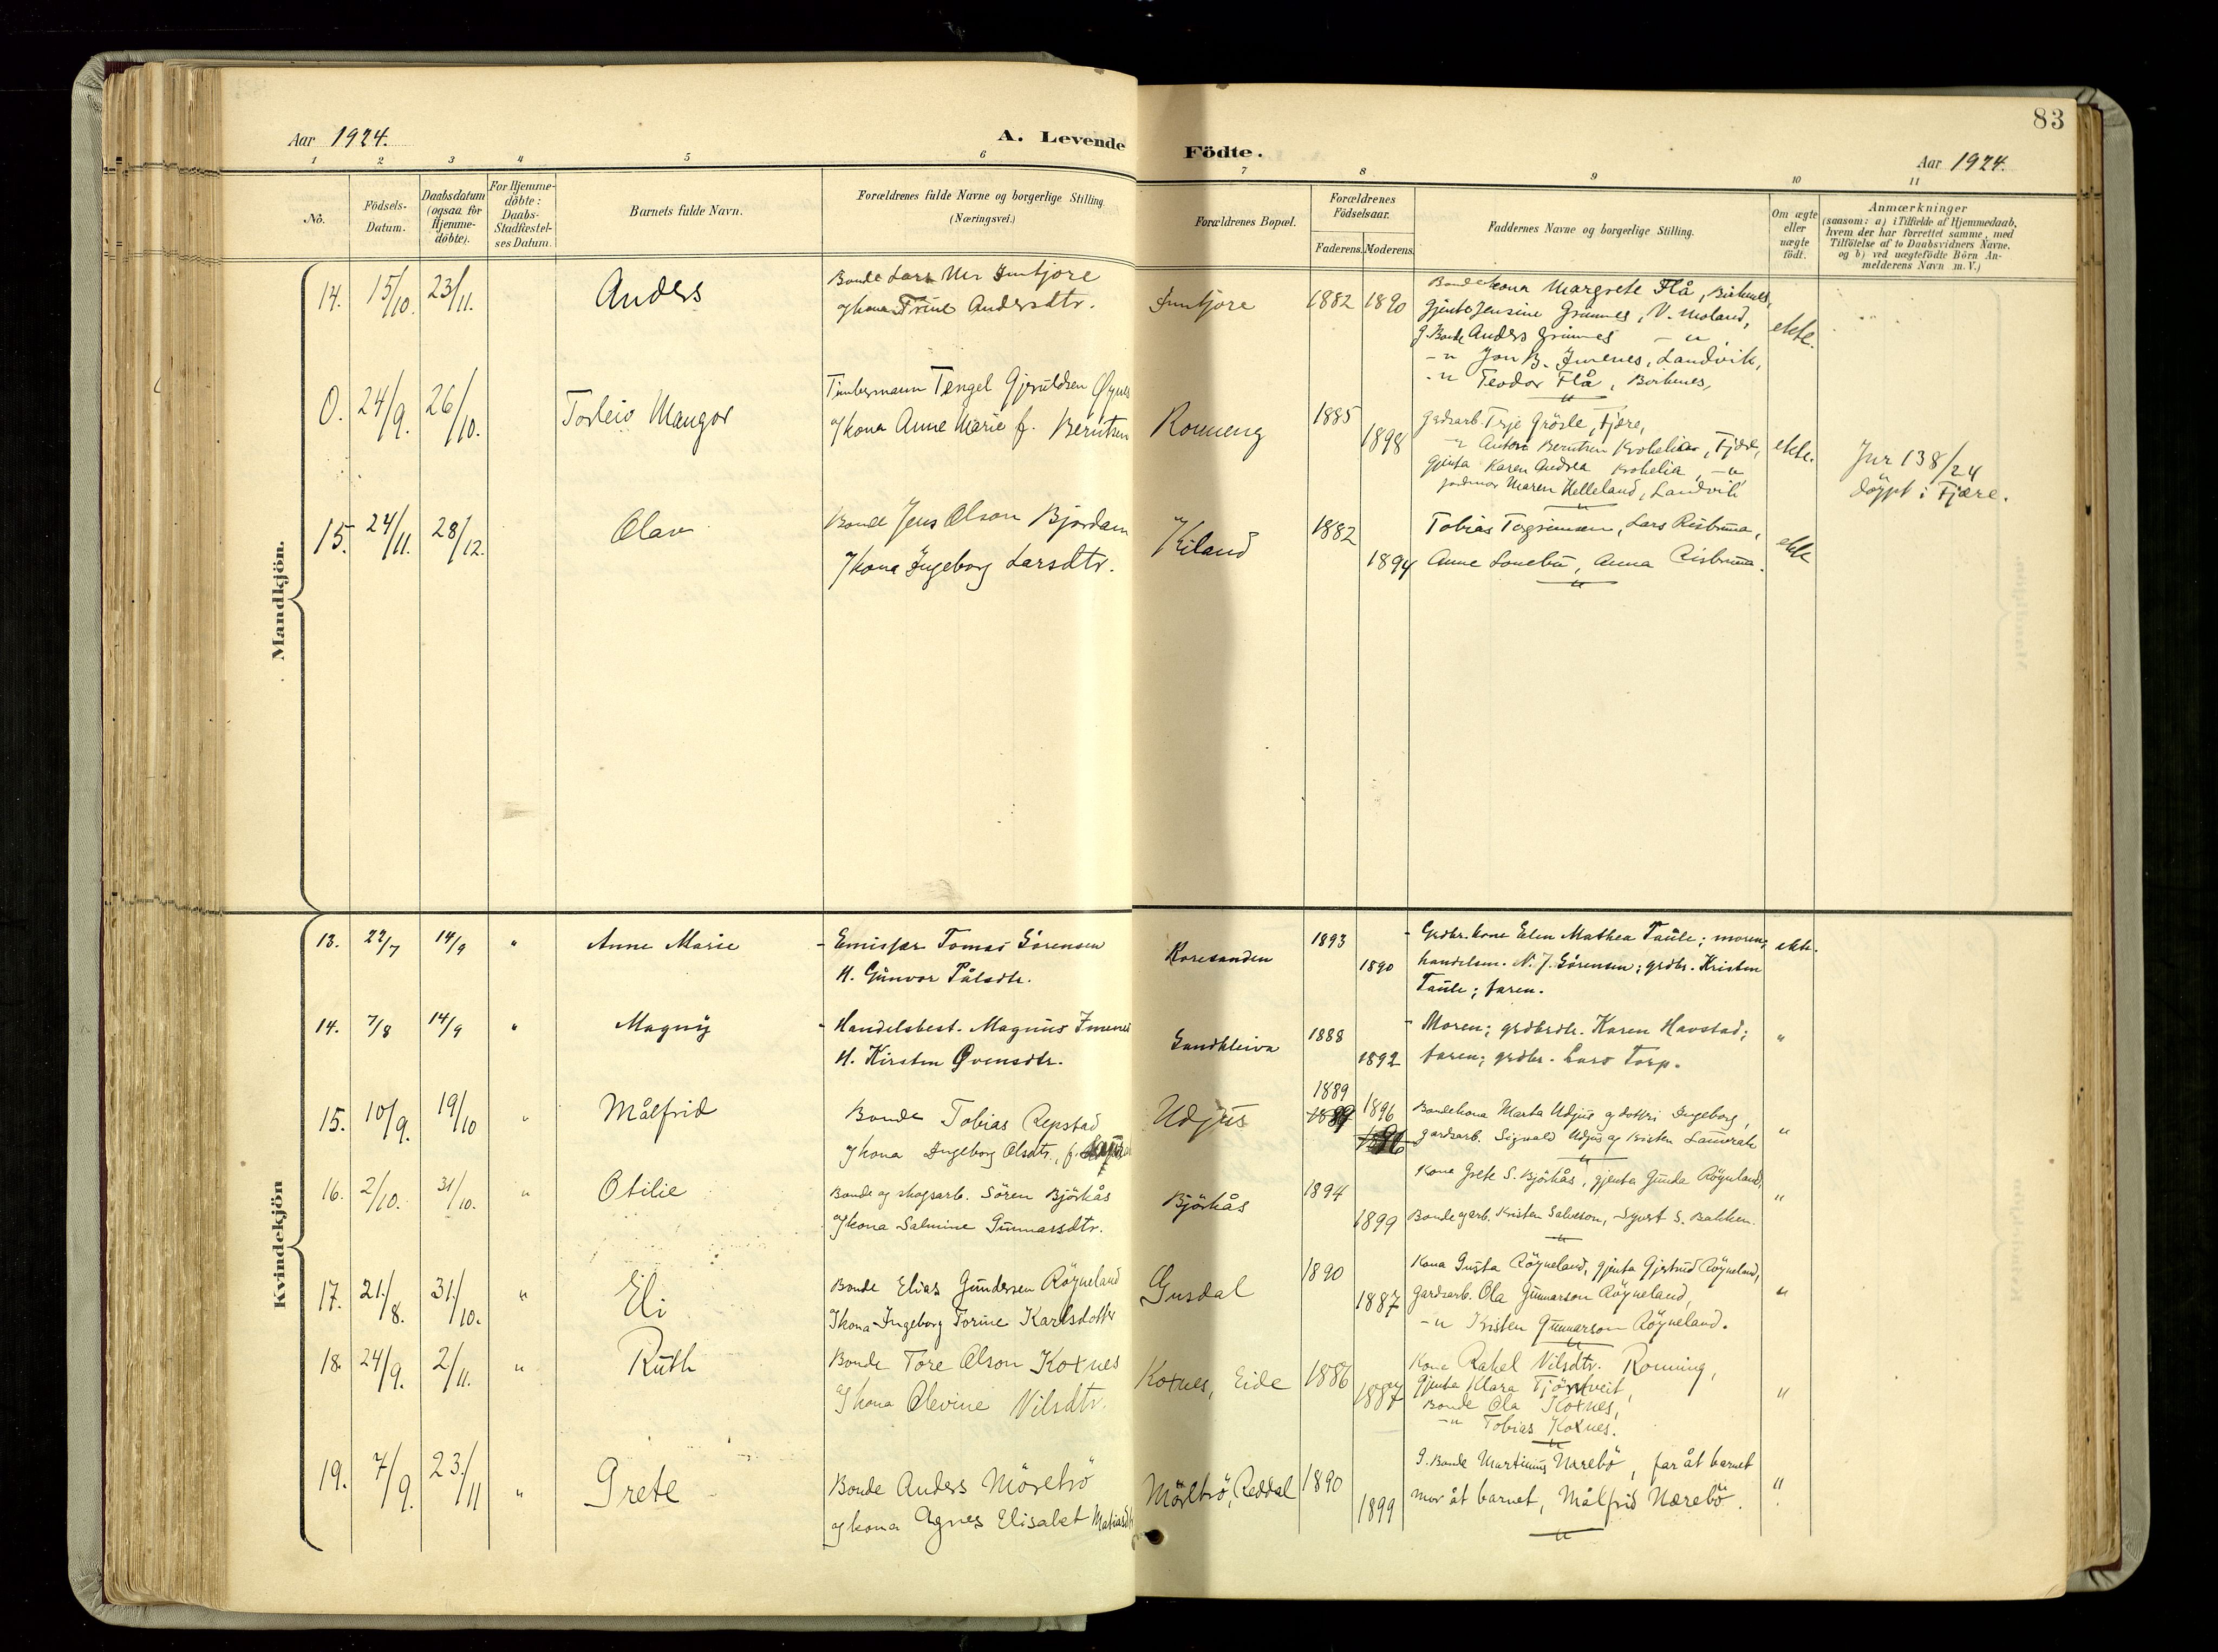 83
Aar 1924.
A. Levende Födte.
Aar 1924.
1 2 3 4 5 6 7 8 9 10 11
No.
Födsels-Datum.
Daabsdatum (ogsaa for Hjemme-döbte).
For Hjemme-döbte: Daabs-Stadfæstel-ses Datum.
Barnets fulde Navn.
Forældrenes fulde Navne og borgerlige Stilling (Næringsvei.)
Forældrenes Bopæl.
Forældrenes Födselsaar.
Faderens. Moderens.
Faddernes Navne og borgerlige Stilling.
Om ægte eller uægte födt.
Anmærkninger
(saasom: a) i Tilfælde af Hjemmedaab,
hvem der har forrettet samme, med
Tilföielse af to Daabsvidners Navne.
og b) ved uægtefödte Börn An-
melderens Navn m. V.)
Mandkjön.
14. 15/10. 23/11. Anders
Bonde Lars
og kona Trine Andersdtr.
1882 1890
Bondekona Margrete Flå, Birkenes,
Gjenta Jensine Grimnes, V. Moland,
g. Bonde Anders Grimnes - " -
- " Jon B. Imenes, Landvik,
- " Teodor Flå, Birkenes,
ekte.
0. 24/9. 26/10. Torleiv Mangor
Tengel
og kona Anne Marie f. Berntsen
1885
1898
Terje Fjære,
- " Anton Berntsen Krohelia, Fjære,
Gjenta Karen Andrea Krohelia, - "
jordmor Maren Helleland, Landvik
ekte.
Jnr 138/24
döypt i Fjære.
15. 24/11. 28/12. Olav
Bonde Jens Olson Bjordam
og kona Ingeborg Larsdtr.
Kiland
1882
1894
Tobias Lars
Anne Anna
ekte
Kvindekjön
13. 22/7 14/9 " Anne Marie
- Emisjær Tomas Sörensen
H. Gunvor Pålsdtr.
Roresanden
1893
1890
- Grdbr. kone Elen Mathea Taule; moren;
handelsm. N. J. Sörensen; grdbr. Kristen
Taule; faren.
ekte.
14. 7/8 14/9 " Magny
- Handelsbest. Magnus Imenes
H. Kirsten Ovensdtr.
Sandkleiva
1888
1892
- Moren; grdbrdtr. Karen Havstad;
faren; grdbr. Lars Torp.
"
15. 10/9. 19/10 " Målfrid
Bonde Tobias Repstad
og kona Ingeborg Olsdtr., f.
Udjus
1889
1896
Bondekona Marta Udjus og dotter Ingeborg,
gardsarb. Sigvald Udjus og Kristen
"
16. 2/10. 31/10. " Otilie
Bonde og skogsarb. Sören Björkås
og kona Salmine Gunnarsdtr.
Björkås
1894
1899
Kona Grete S. Björkås, gjenta Gunda Röyneland,
Bonde g arb. Kristen Salveson, Sjurt S. Bakken.
"
17. 21./8. 31./10. " Eli
Bonde Elias Gundersen Röyneland
og kona Ingeborg Torine Karlsdotter
Gusdal
1890
1887
Kona Gusta Röyneland, gjenta Gjertrud Röyneland,
gardsarb. Ola Gunnarson Röyneland,
- " Kristen Gunnarson Röyneland.
"
18. 24/9. 2/11. " Ruth
Bonde Tore Olson Koxnes
og kona Olevine Nilsdtr.
Koxnes, Eide
1886
1887
Kona Rakel Nilsdtr. Ronning,
Gjenta Klara Tjörntveit,
Bonde Ola Koxnes,
- " Tobias Koxnes.
"
19. 7/9. 23./11 " Grete
Bonde Anders Mörebrö
og kona Agnes Elisabet Matiasdtr
Mörebrö, Reddal
1890
1899
G. Bonde Martinius Nærebö, far åt barnet
mor åt barnet, Målfrid Nærebö.
"